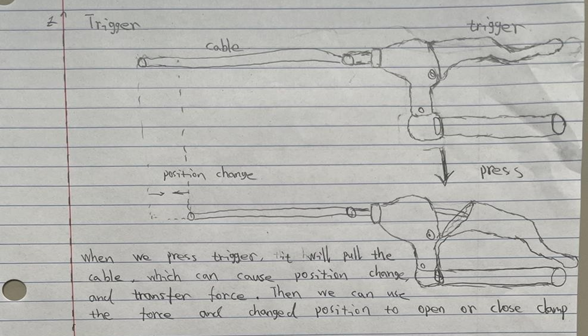 1 Trigger
trigger
cable
position change
press
when we press trigger, it will pull the
cable, which can cause position change,
and transfer force. Then we can use
the force and changed position to open or close clamp